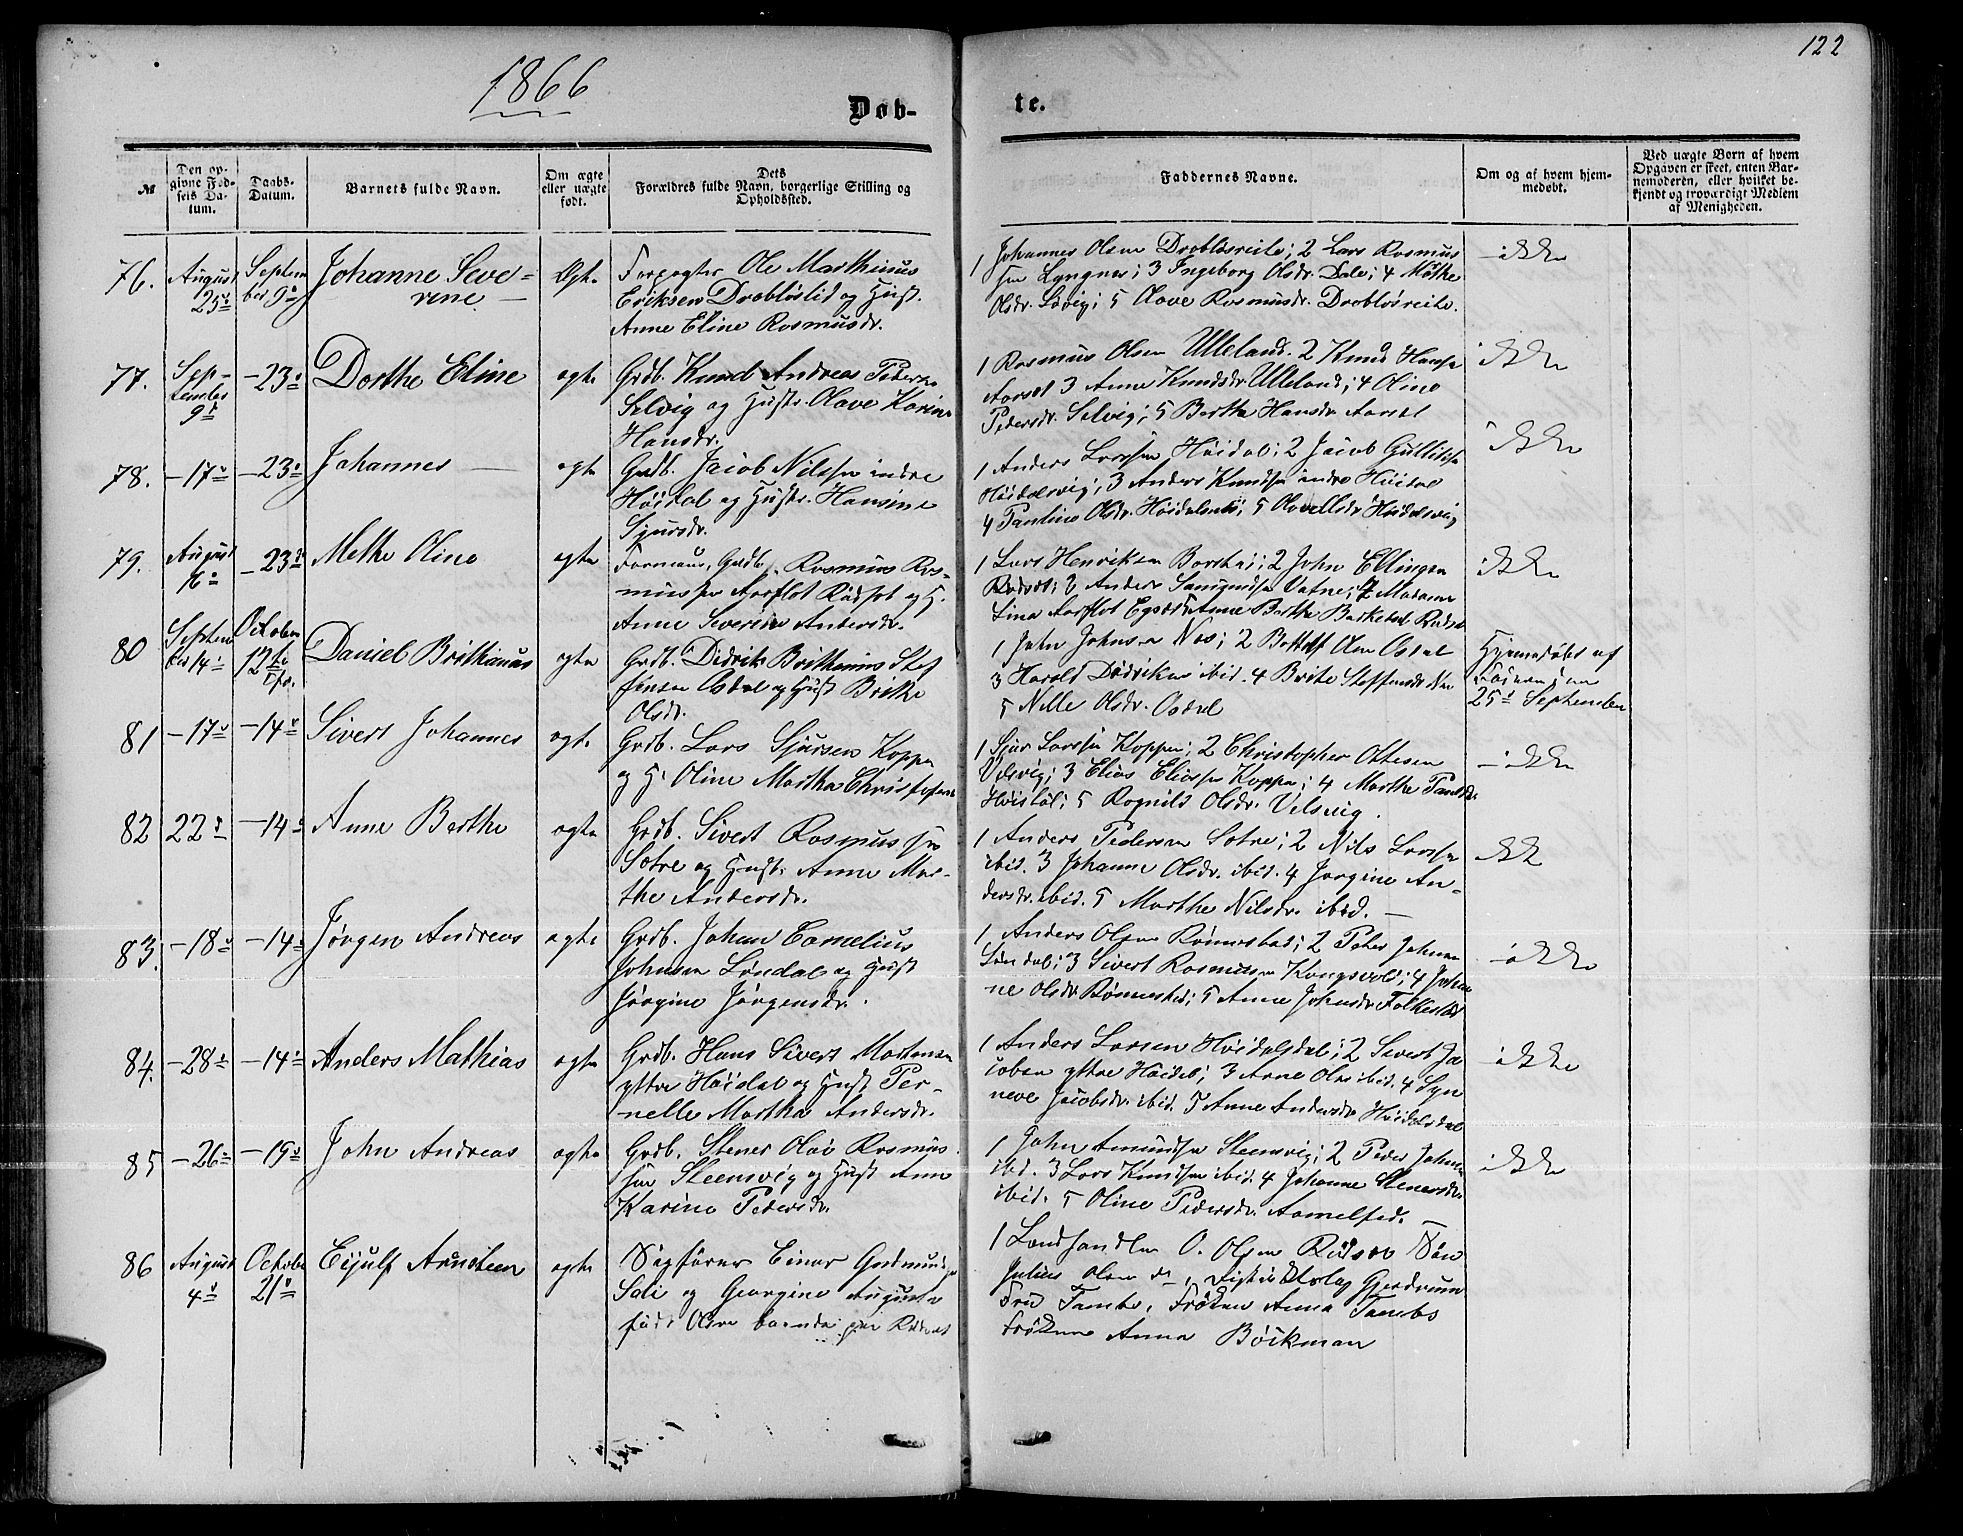 122
1866
Døb-
te.
№
Den op-
givne Fød-
sels Da-
tum.
Daabs-
Datum.
Barnets fulde Navn.
Om ægte
eller uægte
født.
Dets
Forældres fulde Navn, borgerlige Stilling og
Opholdssted.
Faddernes Navne.
Om og af hvem hjem-
medøbt.
Ved uægte Børn af hvem
Opgaven er skeet, enten Bar-
nemoderen, eller hvilket be-
kjendt og troværdigt Medlem
af Menigheden.
76.
August
25de
Septem
ber 9de
Johanne Seve-
rine
Ægte
Forpagter Ole Marthinus
Eriksen Drabløslid og Hust.
Anne Eline Rasmusdr.
1 Johannes Olsen Drabløsreite; 2 Lars Rasmus
sen Lyngnes; 3 Ingeborg Olsdr. Dale; 4 Mathe
Olsdr. Løvig; 5 Olave Rasmusdr. Drabløsreite.
- ikke
77.
Sep-
tember
9de
- 23de
Dorthe Eline
ægte
Grdb. Knud Andreas Peders.
Selvig og Hustr. Olave Karine
Hansdr.
1 Rasmus Olsen Ulleland. 2 Knud Hansen
Aarset 3 Anne Knudsdr. Ulleland; 4 Oline
Pedersdr. Selvig; 5 Berthe Hansdr. Aarset
ikke
78.
- 17de
- 23de
Johannes
ægte
Grdb. Jacob Nilssen indre
Høidal og Hustr. Hansine
Sjursdr.
1 Anders Larssen Høidal; 2 Jacob Gulliks
Høidalsvig; 3 Anders Knudsen indre Høidal
4 Pauline Olsdr. Høidalsnes; 5 Høidalsvig
ikke
79.
August
16de
- 23de
Methe Oline
ægte
Grdb. Rasmus Ras-
mussen Aarflot Rødset og H.
Anne Severine Andersdr.
1 Lars Henriksen Barstad; 2 John Ellingsen
Rødset; 3 Anders Vatne; 4 Madame
Lina Aarflot Egset 5 Anne Berthe Rødset
ikke
80
Septem
ber 14de
October
12te
Daniel Brithanus
ægte
Grdb. Didrik Brithanius Stef
fensen Osdal og Hust Brithe
Olsdr.
1 John Johnsen Nes; 2 Bottolf Olsen Osdal
3 Harald Didriksen ibid. 4 Brite Steffensdr. Nes
5 Nille Olsdr. Osdal
Hjemmedøbt af
25de September
81
- 17de
- 14de
Sivert Johannes
ægte
Grdb. Lars Sjursen Koppen
og H. Oline Marthe Christofersdr
1 Sjur Larssen Koppen; 2 Christopher Ottesen
Velsvig; 3 Elias Eliassen Koppen; 4 Marthe
Høidal; 5 Ragnild Olsdr. Velsvig.
- ikke
82
22de
- 14de
Anne Berthe
ægte
Grdb. Sivert Rasmussen
Sætre og Hust. Anne Mar-
the Andersdr.
1 Anders Pedersen Sætre; 2 Nils Larssen
ibid. 3 Johanne Olsdr. ibid. 4 Jørgine An-
dersdr. ibid. 5 Marthe Nilsdr. ibid.
ikke
83.
- 18de
- 14de
Jørgen Andreas
ægte
Grdb. Johan Cornelius
Johnsen Løndal og Hust
Jørgine Jørgensdr.
1 Anders Olsen Rønnestad; 2 Peter Johnsen
Løndal; 3 Sivert Rasmussen Kongsvold; 4 Johan
ne Olsdr. Rønnestad; 5 Anne Johnsdr. Folkestad
- ikke
84.
- 28de
- 14de
Anders Mathias
ægte
Grdb. Hans Sivert Mortensen
yttre Høidal og Hust Per-
nelle Marthe Andersdr.
1 Anders Larsen Høidalsdal; 2 Sivert Ja
cobsen yttre Høidal; 3 Arne Olsen ibid. 4 Syn
neve Jacobsdr. ibid. 5 Anne Andersdr. Høidalsdal
- ikke
85
- 26de
- 19de
John Andreas
ægte
Grdb. Stener Olai Rasmus
sen Steensvig og Hust Anne
Karine Pedersdr.
1 John Amundsen Steensvig; 2 Peder Johnsen
ibid. 3 Lars Knudsen ibid. 4 Johanne Stenersdr.
ibid. 5 Oline Pedersdr. Aamelfod.
ikke
86
August
4de
October
21de
Eijulf Arnsteen
ægte
Sagfører Einar Gudmundsen
Sole og Georgine Augusta
født Olsen boende paa Rødset
1 Landhandler O. Olsen Rødset Søn
Julius Olsen Gjerdrum
Fru Tambs, Frøken Anna Tambs
Frøken Anna Bøckman